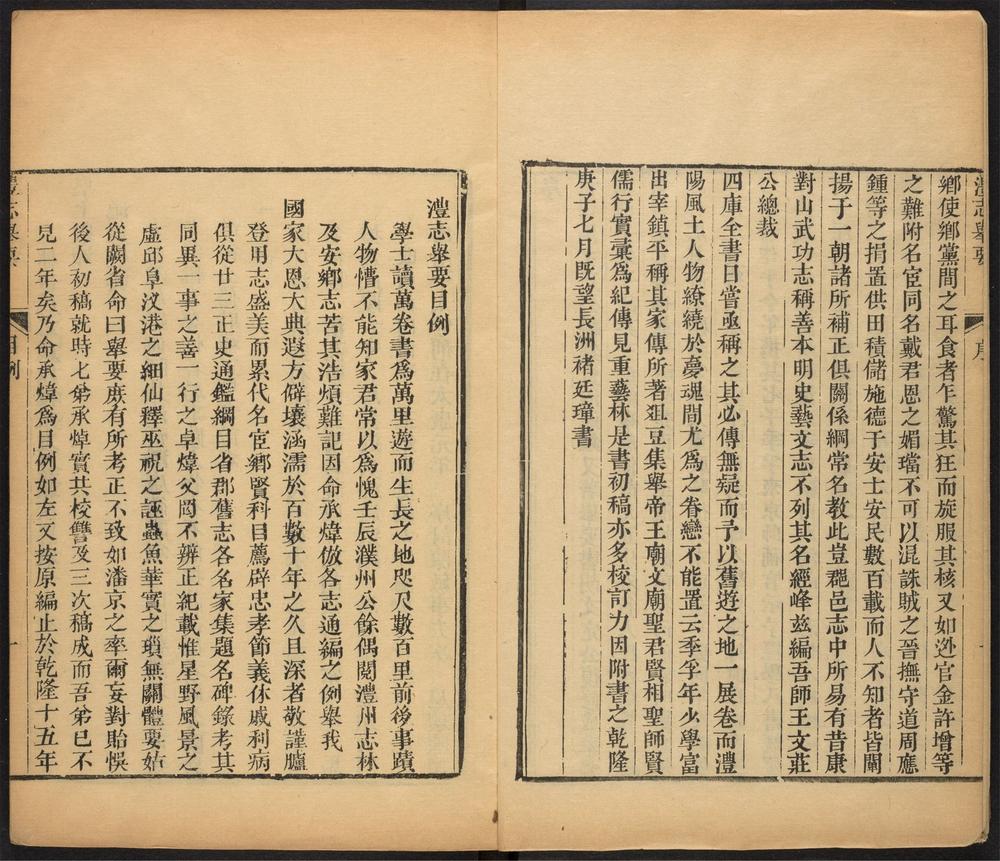 澧志舉要
序
鄉使鄉黨間之耳食者乍驚其狂而旋服其核又如逊官金許增等
之難附名宦同名戴君恩之媚璫不可以混誅賊之晉撫守道周應
鍾等之捐置供田積儲施德于安士安民數百載而人不知者皆闡
揚于一朝諸所補正俱關係綱常名教此豈郡邑志中所易有昔康
對山武功志稱善本明史藝文志不列其名經峰茲編吾師王文莊
公總裁
四庫全書日嘗亟稱之其必傳無疑而予以舊遊之地一展卷而澧
陽風土人物繚繞於夢魂間尤爲之眷戀不能置云季孚年少學富
出宰鎮平稱其家傳所著俎豆集舉帝王廟文廟聖君賢相聖師賢
儒行實彙爲紀傳見重藝林是書初稿亦多校訂力因附書之乾隆
庚子七月既望長洲褚廷璋書
澧志舉要目例
學士讀萬卷書爲萬里遊而生長之地咫尺數百里前後事蹟
人物懵不能知家君常以爲愧壬辰濮州公餘偶閱澧州志林
及安鄉志苦其浩煩難記因命承煒倣各志通編之例舉我
國家大恩大典遐方僻壤涵濡於百數十年之久且深者敬謹臚
登用志盛美而累代名宦鄉賢科目薦辟忠孝節義休戚利病
俱從廿三正史通鑑綱目省郡舊志各名家集題名碑錄考其
同異一事之善一行之卓煒父罔不辨正紀載惟星野風景之
虛邱阜汊港之細仙釋巫祝之誣蟲魚華實之瑣無關體要姑
從闕省命曰舉要庶有所考正不致如潘京之率爾妄對貽悞
後人初稿就時七弟承焯實共校讐及三次稿成而吾弟已不
見二年矣乃命承煒爲目例如左又按原編止於乾隆十五年
目例
一